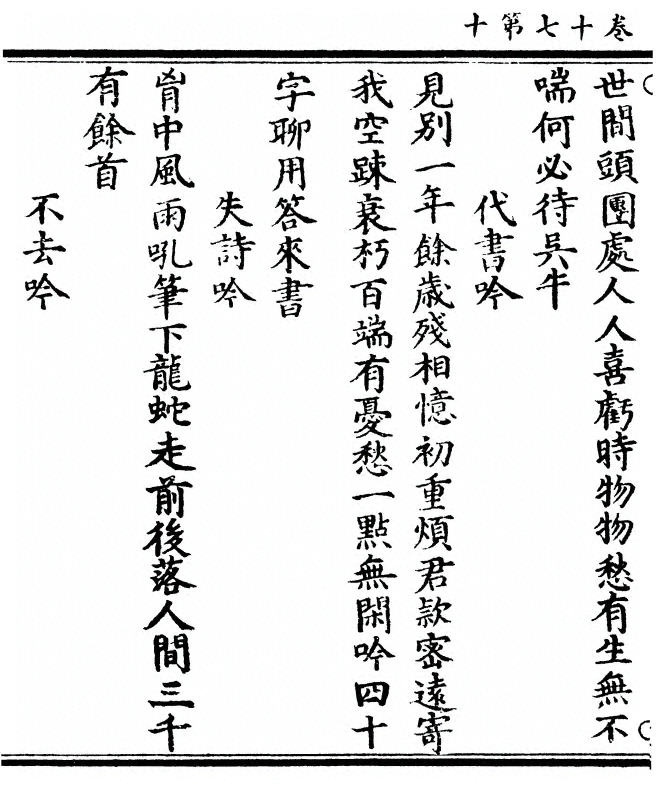 卷十七第十
世間頭團處人人喜虧時物物愁有生無不
喘何必待吳牛
代書吟
見別一年餘歲殘相憶初重煩君款密遠寄
我空踈衰朽百端有憂愁一點無閑吟四十
字聊用答來書
失詩吟
胷中風雨吼筆下龍蛇走前後落人間三千
有餘首
不去吟